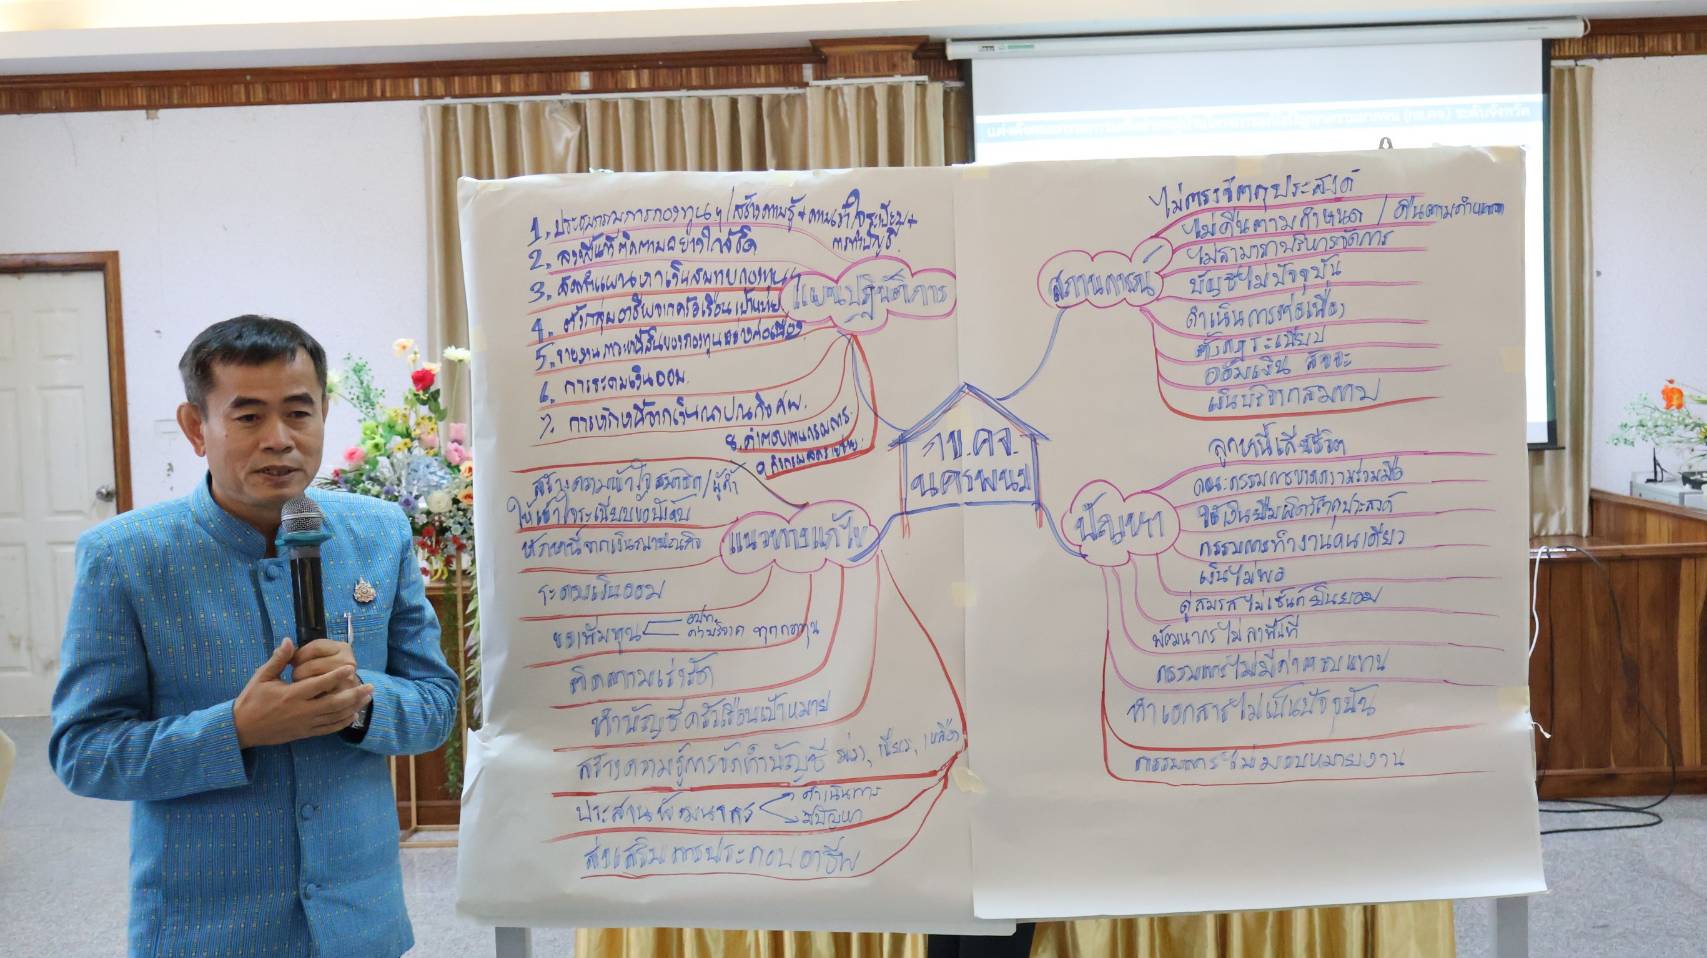 แต่งตั้งคณะกรรมการ (กข.คจ.) ระดับจังหวัด
1. ประชุมกรรมการกองทุนฯ/สร้างความรู้+ความเข้าใจระเบียบ+
การทำบัญชี
2. ลงพื้นที่ติดตามอย่างใกล้ชิด
3. จัดทำแผนหาเงินสมทบกองทุน
4. ตั้งกลุ่มอาชีพจากครัวเรือนเป้าหมาย
5. รายงานภาวะหนี้สินของกองทุนอย่างต่อเนื่อง
6. การระดมเงินออม
7. การหักหนี้จากเงินฌาปนกิจศพ.
8. ค่าตอบแทนกรรมการ.
9.
แผนปฏิบัติการ
สร้างความเข้าใจสมาชิก/ผู้ค้ำ
ให้เข้าใจระเบียบข้อบังคับ
หักหนี้จากเงินฌาปนกิจ
ระดมเงินออม
ของเพิ่มทุน
อปท.
ทุกกองทุน
ติดตามเร่งรัด
ทำบัญชีครัวเรือนเป้าหมาย
สร้างความรู้การจัดทำบัญชี
ประสานพัฒนากร
ดำเนินการ
มีปัญหา
ส่งเสริมการประกอบอาชีพ
แนวทางแก้ไข
กข.คจ.
นครพนม
สถานการณ์
ไม่ตรงวัตถุประสงค์
ไม่คืนตามกำหนด / คืนตามกำหนด
ไม่สามารถบริหารจัดการ
บัญชีไม่ปัจจุบัน
ดำเนินการต่อเนื่อง
ตั้งกฎระเบียบ
ออมเงิน สัจจะ
เงินบริจาคสมทบ
ปัญหา
ลูกหนี้เสียชีวิต
คณะกรรมการขาดความร่วมมือ
ใช้เงินยืมผิดวัตถุประสงค์
กรรมการทำงานคนเดียว
เงินไม่พอ
คู่สมรสไม่เซ็นต์ยินยอม
พัฒนากรไม่ลงพื้นที่
กรรมการไม่มีค่าตอบแทน
ทำเอกสารไม่เป็นปัจจุบัน
กรรมการไม่มอบหมายงาน